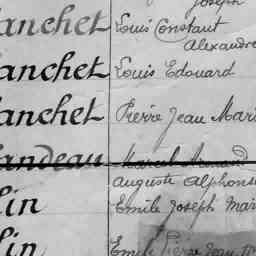 Joseph
anchet Louis Constant
Alexandre
anchet Louis Edouard
anchet Pierre Jean Mari
andeau Marcel Armand
Auguste Alphons
lin Emile Joseph Mar
lin Emile Pierre Jean M